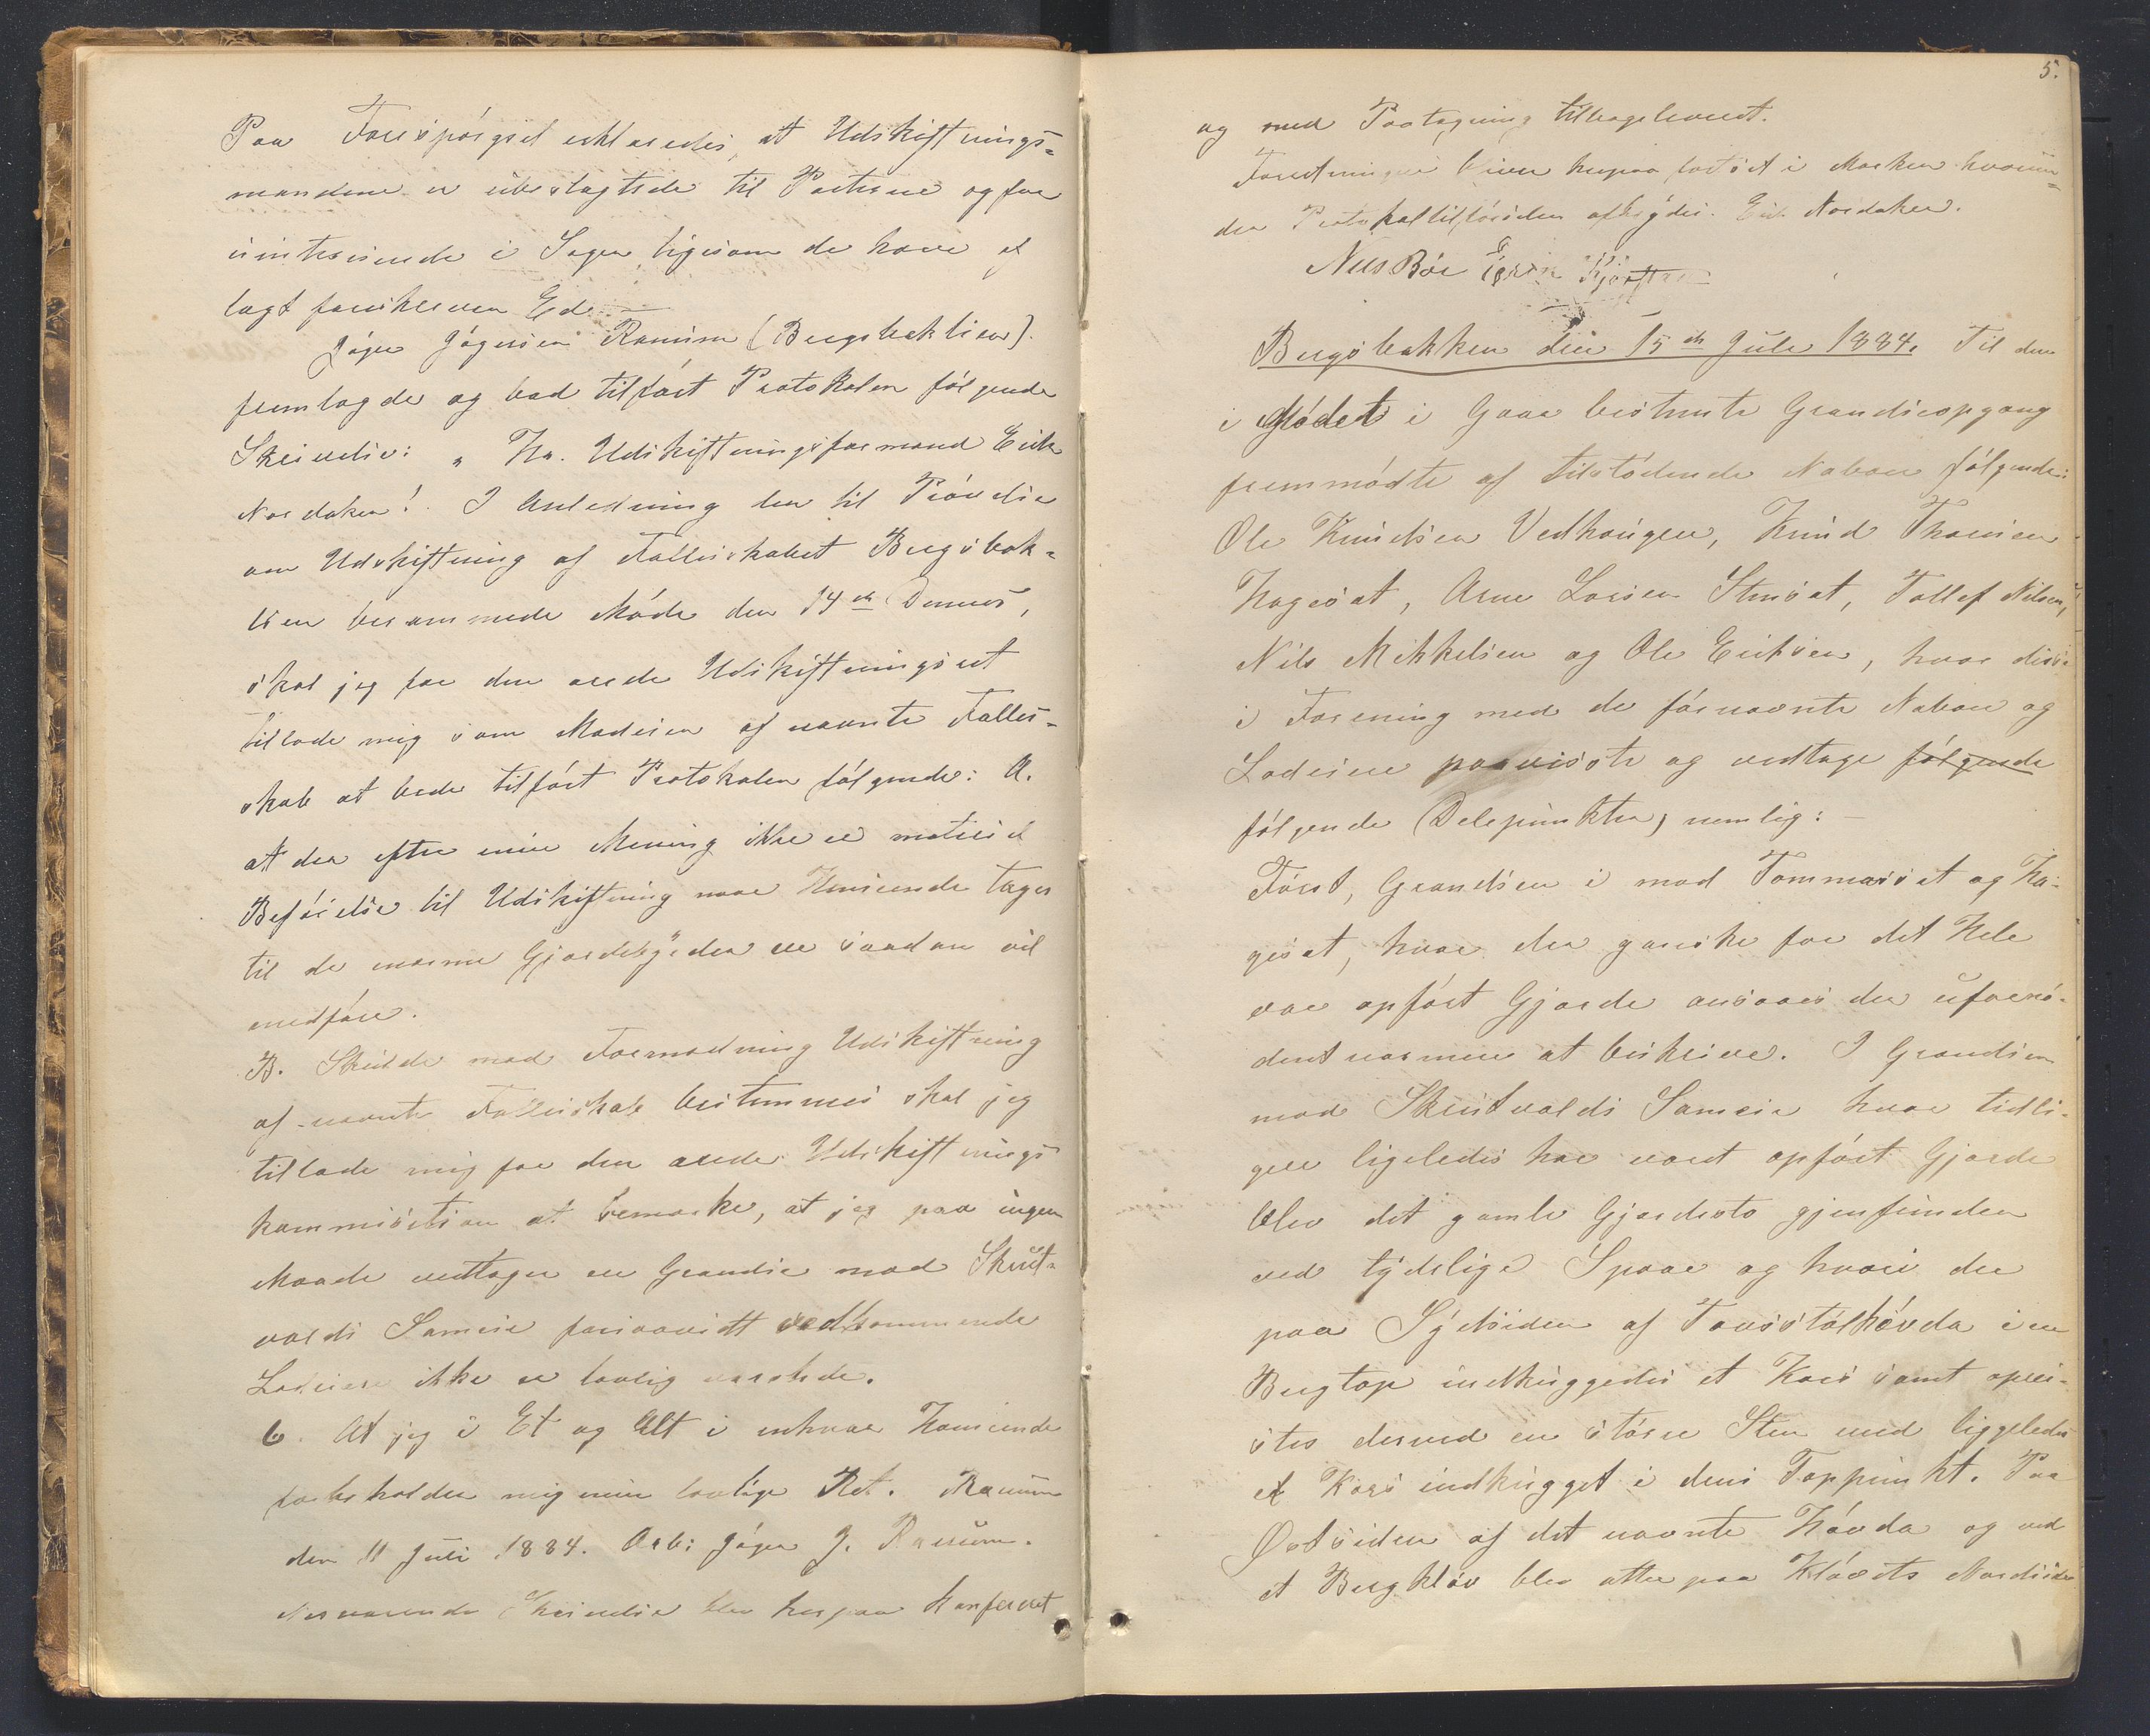 Paa Forespørgsel erklæredes, at Udskiftnings-
mændene er ubeslægtede til Parterne og for
uinteresserede i Sagen ligesom de have af
lagt foreskreven Ed.
Jøger Jøgersen Ranum (Bergsbaklien).
fremlagde og bad tilført Protokolen følgende
Skrivelse: „Hr. Udskiftningsformand Erik
Nordaker! I Anledning den til Prøvelse
om Udskiftning af Fællesskabet Bergsbak-
lien berammede Møde den 14de Dennes,
skal jeg for den ærede Udskiftningsret
tillade mig som Medeier af nævnte Fælles-
skab at bede tilført Protokolen følgende: A.
at der efter min Mening ikke er motiveret
Beføielse til Udskiftning naar Hensynde tages
til de enorme Gjærdebyrder en saadan vil
medføre.
B. Skulde mod Formodning Udskiftning
af nævnte Fællesskab bestemmes skal jeg
tillade mig for den ærede Udskiftnings
kommission at bemærke, at jeg paa ingen
Maade vedtager en Grændse mod Skrut-
volds Sameie forsaavidt vedkommende
Lodeiere ikke er lovlig varslede.
6. At jeg i Et og Alt i enhver Henseende
forbeholder mig min lovlige Ret. Ranum
den 11 Juli 1884. Ærb: Jøger J. Ranum.
Nærværende Skrivelse blev herpaa konfereret
5.
og med Paategning tilbageleveret.
Forretningen blev herpaa fortsat i Marken hvorun-
der Protokoltilførselen afbrydes. Erik Nordaker.
Nils Bøe
Bergsbakken den 15de Juli 1884. Til den
i Mødet i Gaar bestemte Grændseopgang
fremmødte af tilstødende Naboer følgende:
Ole Knudsen Vedhaugen, Knud Thoresen
Hageset, Arne Larsen Stenset, Tollef Nilsen,
Nils Mikkelsen og Ole Eriksen, hvor disse
i Forening med de førnævnte Naboer og
Lodeiere paaviste og vedtage følgende
følgende Delepunkter, nemlig: —
Først, Grændsen i mod Tommasset og Ha-
geset, hvor der ganske for det Hele
var opført Gjærde ansaaes det ufornø-
dent nærmere at beskrive. I Grændsen
mod Skrutvolds Sameie hvor tidli-
gere ligeledes har været opført Gjærde
blev det gamle Gjærdesto gjenfunden
ved tydelige Spor og hvori der
paa Sydsiden af Tousstølhøvda i en
Bergtop indhuggedes et Kors samt oprei-
stes derved en større Sten med liggeledes
et Kors indhugget i dens Toppunkt. Paa
Østsiden af det nævnte Høvda og ved
et Bergkløv blev atter paa Kløvets Nordside